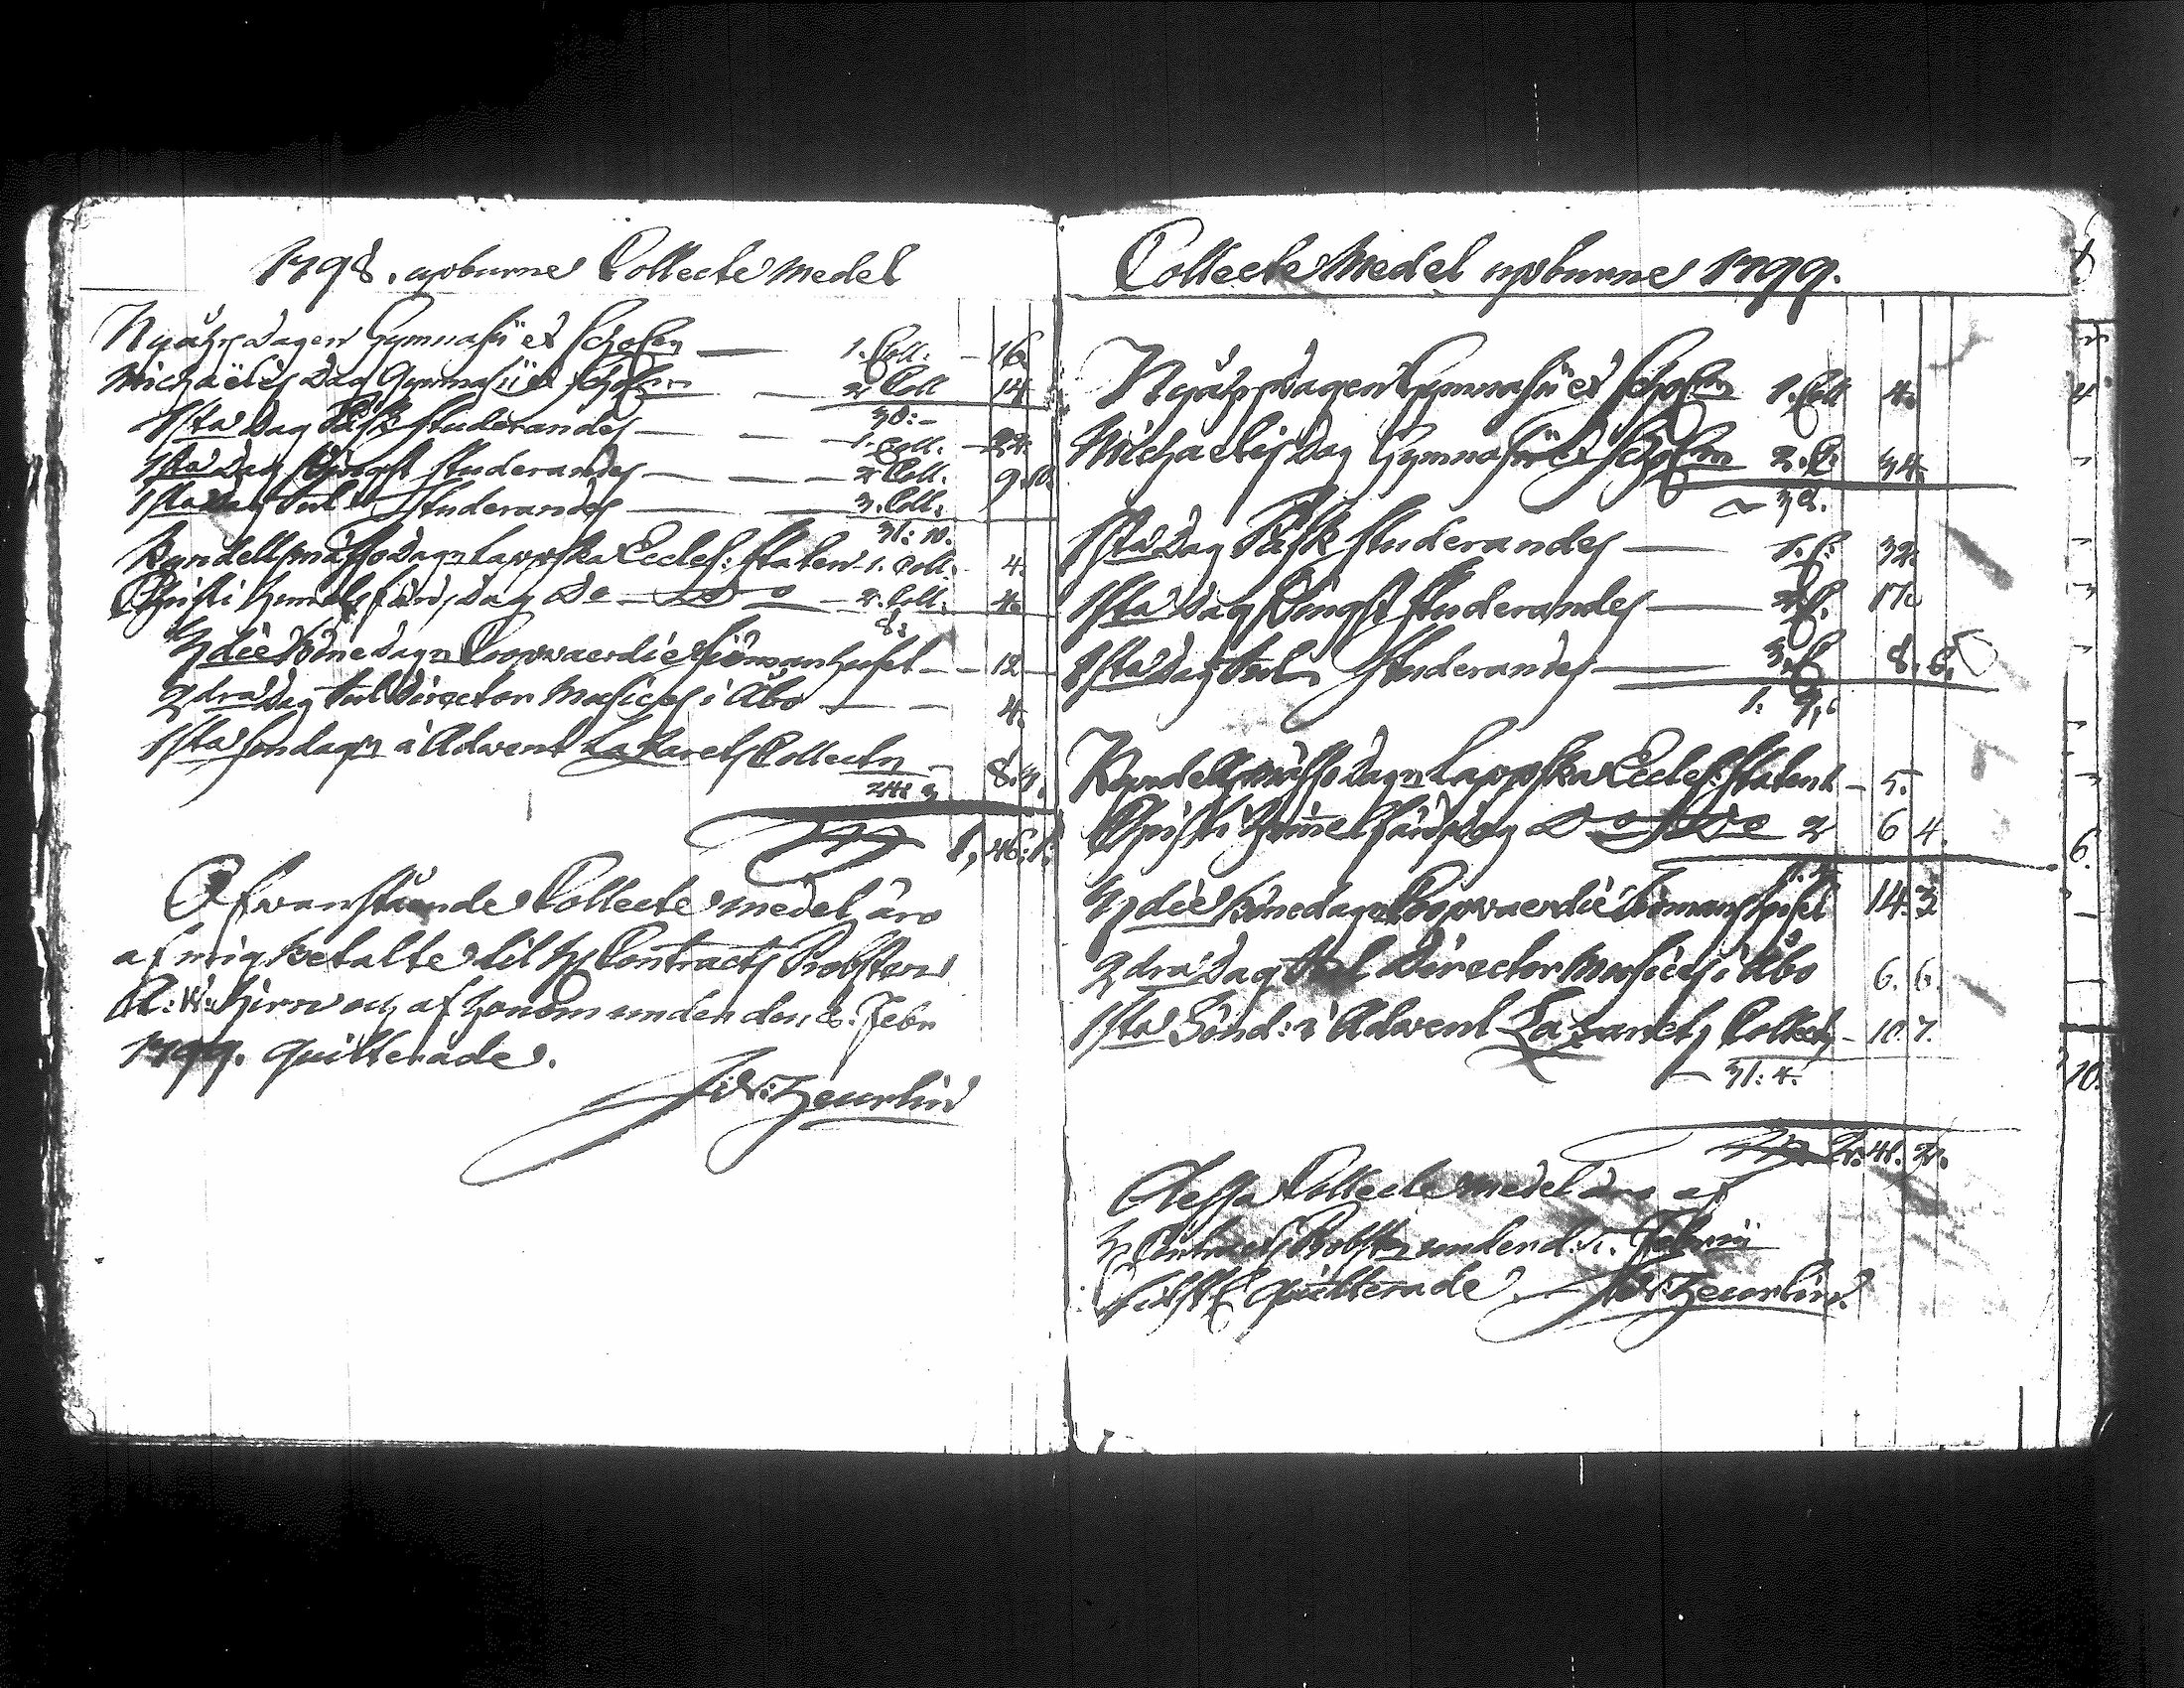 1798. upburne Collecte Medel
Nyåhrsdagen Gymnasii et Scholen — 1. Coll. — 16
Michaëlis Dag Gymnasii et Scholen — 2 Coll 14
30: -
1sta Dag Påsk Studerandes — 1. Coll. — 22.
1sta Dag Pingst Studerandes — 2 Coll. 9. 10.
1sta Dag Jul Studerandes — 3. Coll.
31: 10.
Kyndelsmässo Dagn Lappska Eccles: Staten 1. Coll. 4.
Christi Himmelsfärds Dag Do — Do — 2. Coll. 4.
8:
3die Bönedagn Coopvaerdie Siömanshuset — 12
2dra Dag Jul Director Musices i Åbo — 4.
1sta Söndagn i Advent Lazarets Collectn — 8.
24:
1, 46:
Ofwanstående Collecte medel äro
af mig betalte til H Contracts Probsten
och af honom under den 8. Febr
1799. quitterade.
Collecte Medel upburne 1799.
Nyåhrsdagen Gymnasii et Scholen 1. Coll 4.
Michaelis Dag Gymnasii et Scholen 2. C. 34.
— 38.
1sta Dag Påsk Studerandes — 1. C. 32.
1sta Dag Pingst Studerandes — 2 C. 17.
1sta Dag Jul Studerandes — 3. C 8. 6.
1: 9, 6
Kyndelsmässo Dagn Lappska Eccles: Staten 1 — 5.
Christi Himmelsfärds dag Do Do 2 6 4.
11. 4
3die Bönedagn Coopvaerdie Siömans huset 14. 3
2dra Dag Jul Director Musices i Åbo 6. 6.
1sta Sönd: i Advent Lazarets Collect — 10. 7.
— 31: 4.
2. 41. 2.
Dessa Collecte medel äro af
H Contracts Probstn under d. Februarii
quitterade
6.
10.